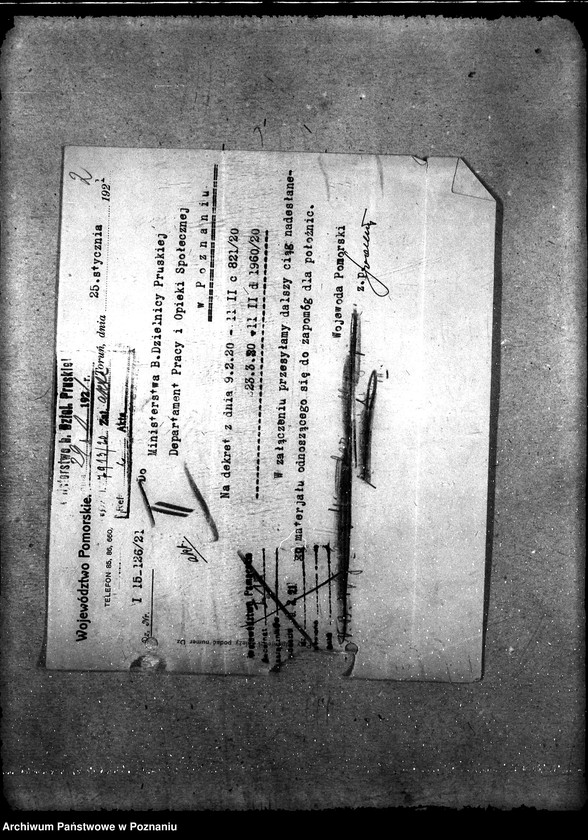 Województwo Pomorskie.
TELEFON 65, 86, 650.
Dz. Nr. I 15-126/21
Toruń, dnia 25.stycznia 1921
2
Ministerstwo b. Dziel. Pruskiej
192 r.
7913/20
Akta
Do
Ministerstwa B.Dzielnicy Pruskiej
Departament Pracy i Opieki Społecznej
w Poznaniu
Na dekret z dnia 9.2.20 - 11 II c 821/20
23.3.20 - 11 II d 1960/20
W załączeniu przesyłamy dalszy ciąg nadesłane-
go materjału odnoszącego się do zapomóg dla położnic.
Wojewoda Pomorski
z.
podać numer Dz
Archiwum Państwowe w Poznaniu